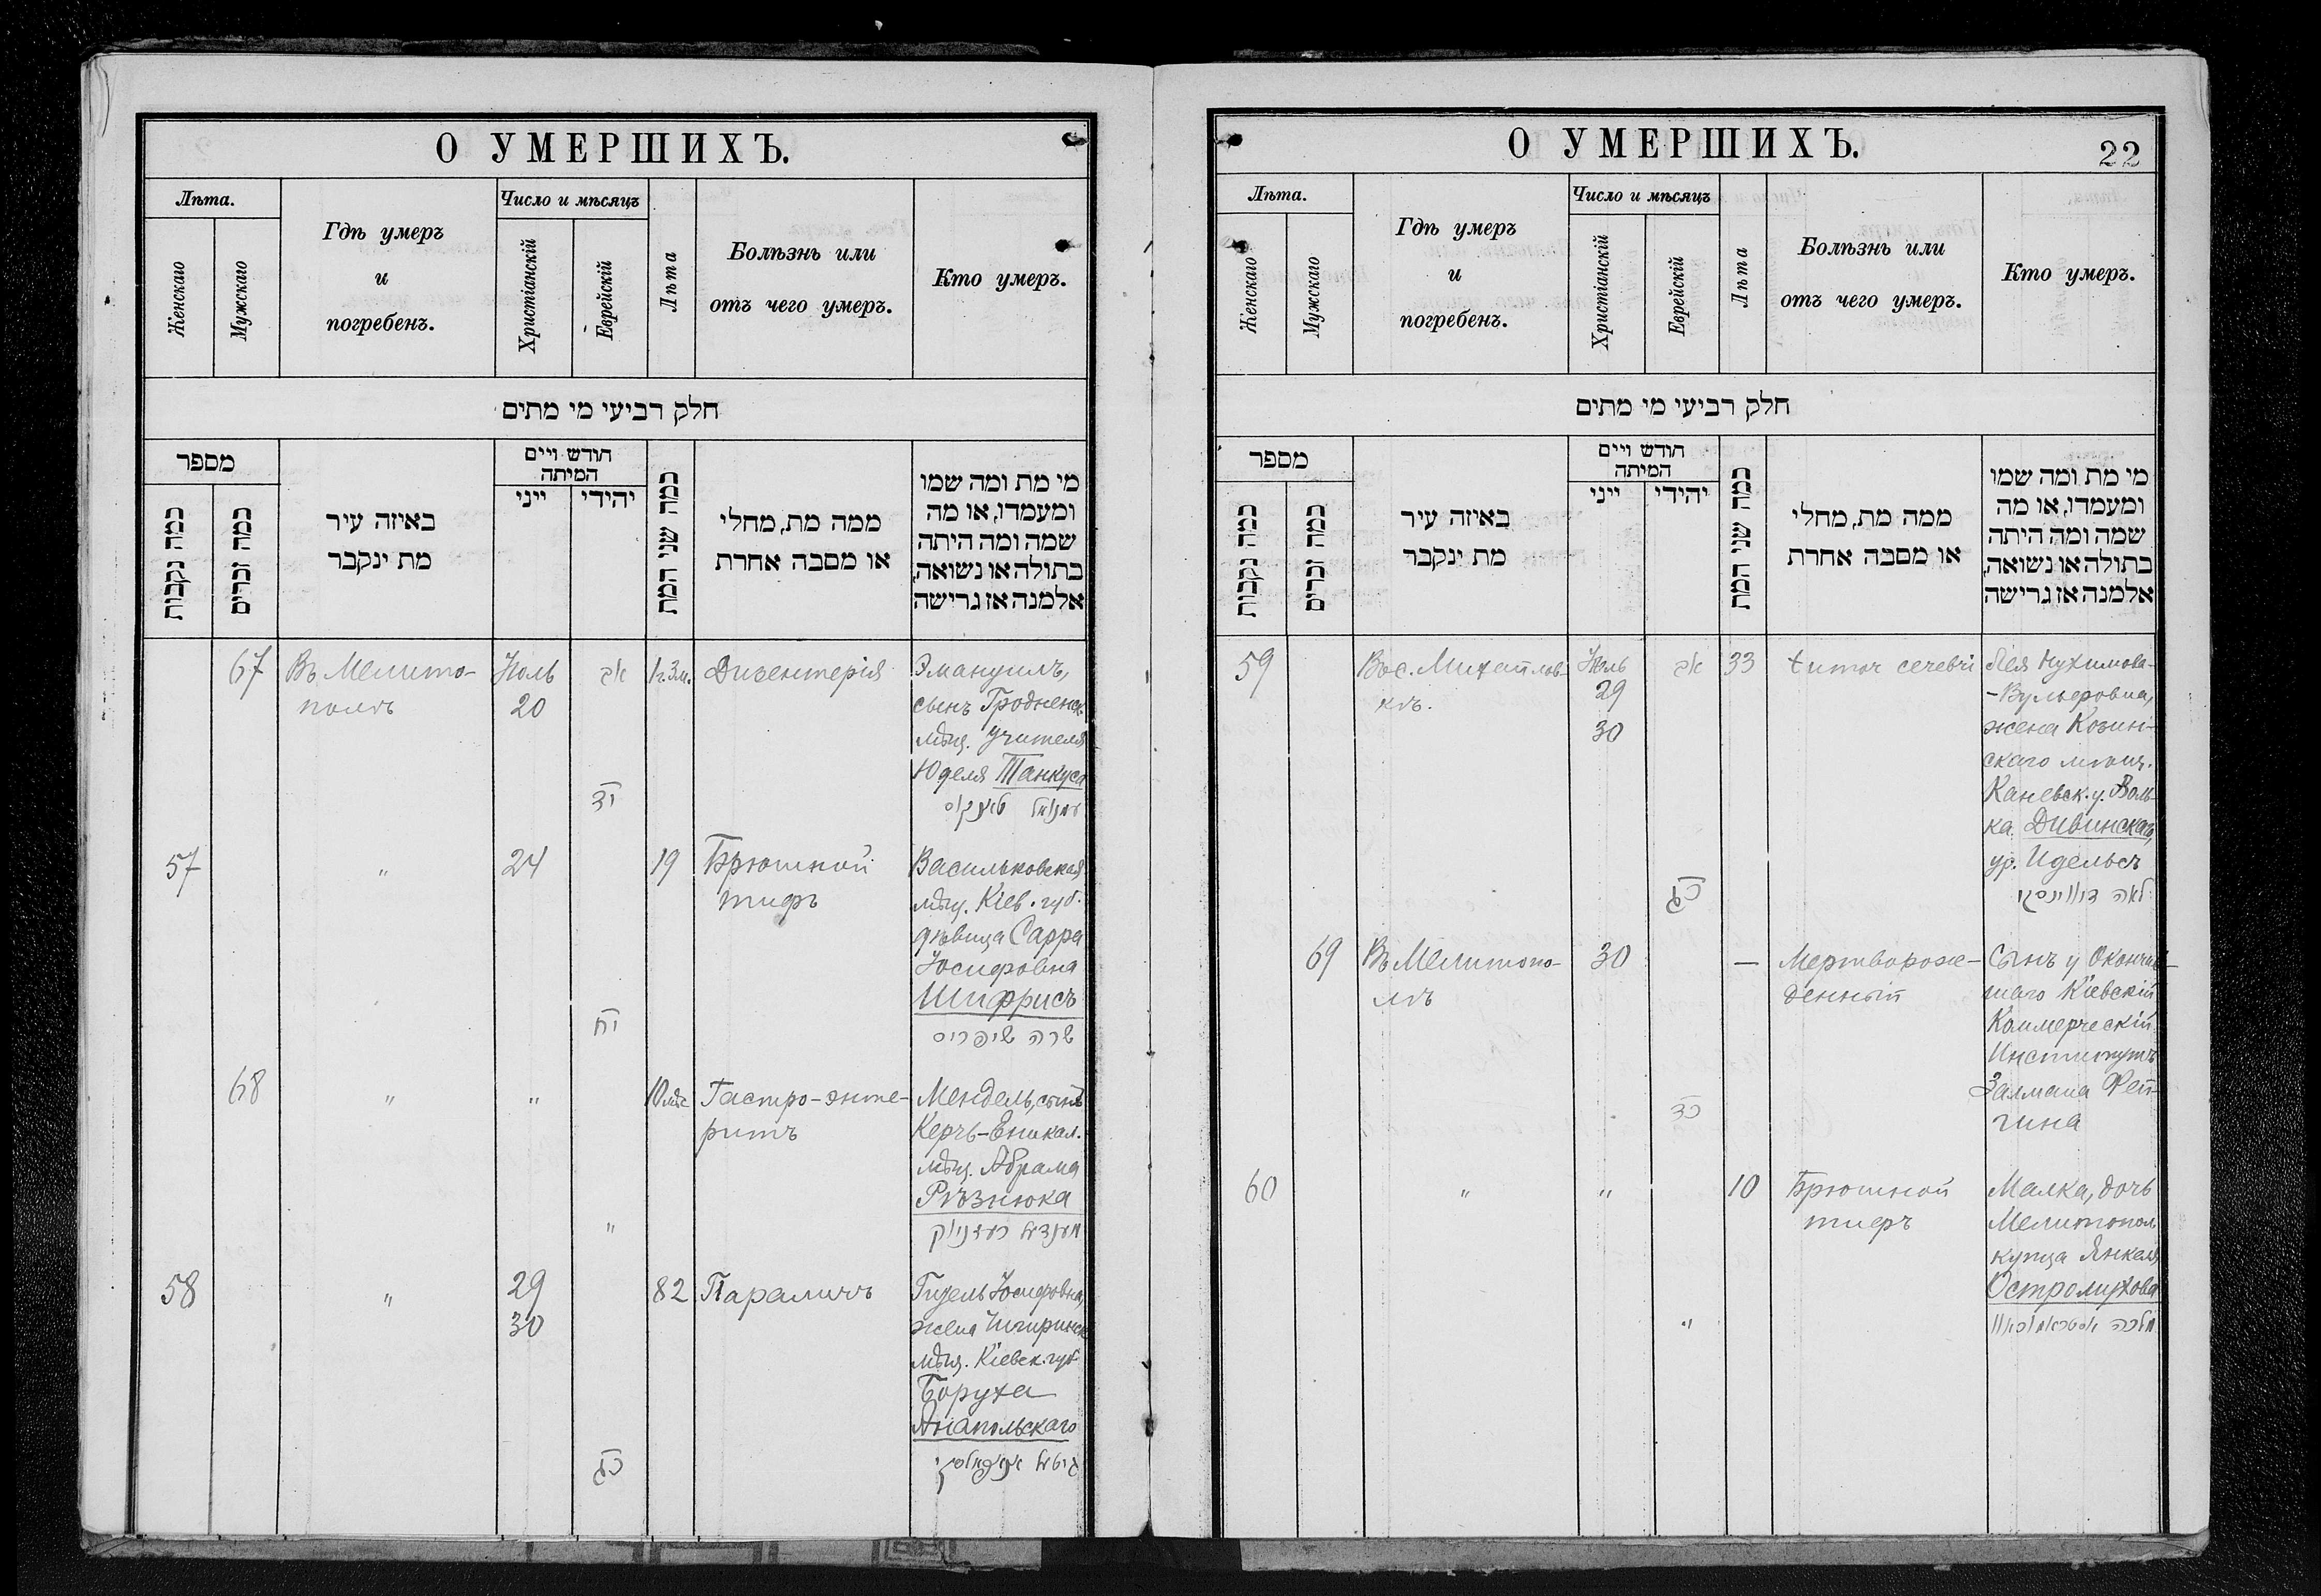 О УМЕРШИХЪ.
Лѣта.
Женскаго
Мужскаго
Гдѣ умеръ
и
погребенъ.
Число и мѣсяцъ
Христіанскій
Еврейскій
Лѣта
Болѣзнь или
отъ чего умеръ.
Кто умеръ.
חלק רביעי מי מתים
מספר
כמה נקבות
כמה זכרים
באיזה עיר
מת ינקבר
חודש ויים
המיתה
ייני
יהידי
כמה שני המת
ממה מת, מחלי
או מסבה אחרת
מי מת ומה שמו
ומעמדו, או מה
שמה ומה היתה
בתולה או נשואה,
אלמנה אז גרישה
67
Въ Мелито-
полѣ
Іюль
20
אב
יד
1г.3м.
Дизентерія
Эмануилъ,
сынъ Гродненск.
мѣщ. учителя
Юделя Танкуса
57
"
24
יח
19
Брюшной
тифъ
Васильковская
мѣщ. Кіев. губ.
дѣвица Сарра
Іосифовна
Шифрисъ
שרה שיפריס
68
"
"
"
10 мѣс
Гастро-энте-
ритъ
Мендель, сынъ
Керчь-Еникал.
мѣщ. Абрама
Рѣзнюка
מענדיל רעזניוק
58
"
29
30
כג
82
Параличъ
Гитель Іосифовна,
жена Чигиринск
мѣщ. Кіевск. губ
Боруха
Анапольскаго
О УМЕРШИХЪ.
22
Лѣта.
Женскаго
Мужскаго
Гдѣ умеръ
и
погребенъ.
Число и мѣсяцъ
Христіанскій
Еврейскій
Лѣта
Болѣзнь или
отъ чего умеръ.
Кто умеръ.
חלק רביעי מי מתים
מספר
כמה נקבות
כמה זכרים
באיזה עיר
מת ינקבר
חודש ויים
המיתה
ייני
יהידי
כמה שני המת
ממה מת, מחלי
או מסבה אחרת
מי מת ומה שמו
ומעמדו, או מה
שמה ומה היתה
בתולה או נשואה,
אלמנה אז גרישה
59
Въ с. Михайлов-
кѣ.
Іюль
29
30
אב
כג
33
tumor cerebri
Лея Нухимова-
-Вульфовна,
жена Козин-
скаго мѣщ.
Каневск. у. Воль-
ка Дивинскаго,
ур. Идельсъ
לאה דיווינסקי
69
Въ Мелитопо-
лѣ
30
כד
—
Мертворож-
денный
Сынъ у окончив-
шаго Кіевскій
Коммерческій
Институтъ
Залмана Фей-
гина
60
"
"
"
10
Брюшной
тифъ
Малка, дочь
Мелитопол.
купца Янкеля
Остромухова